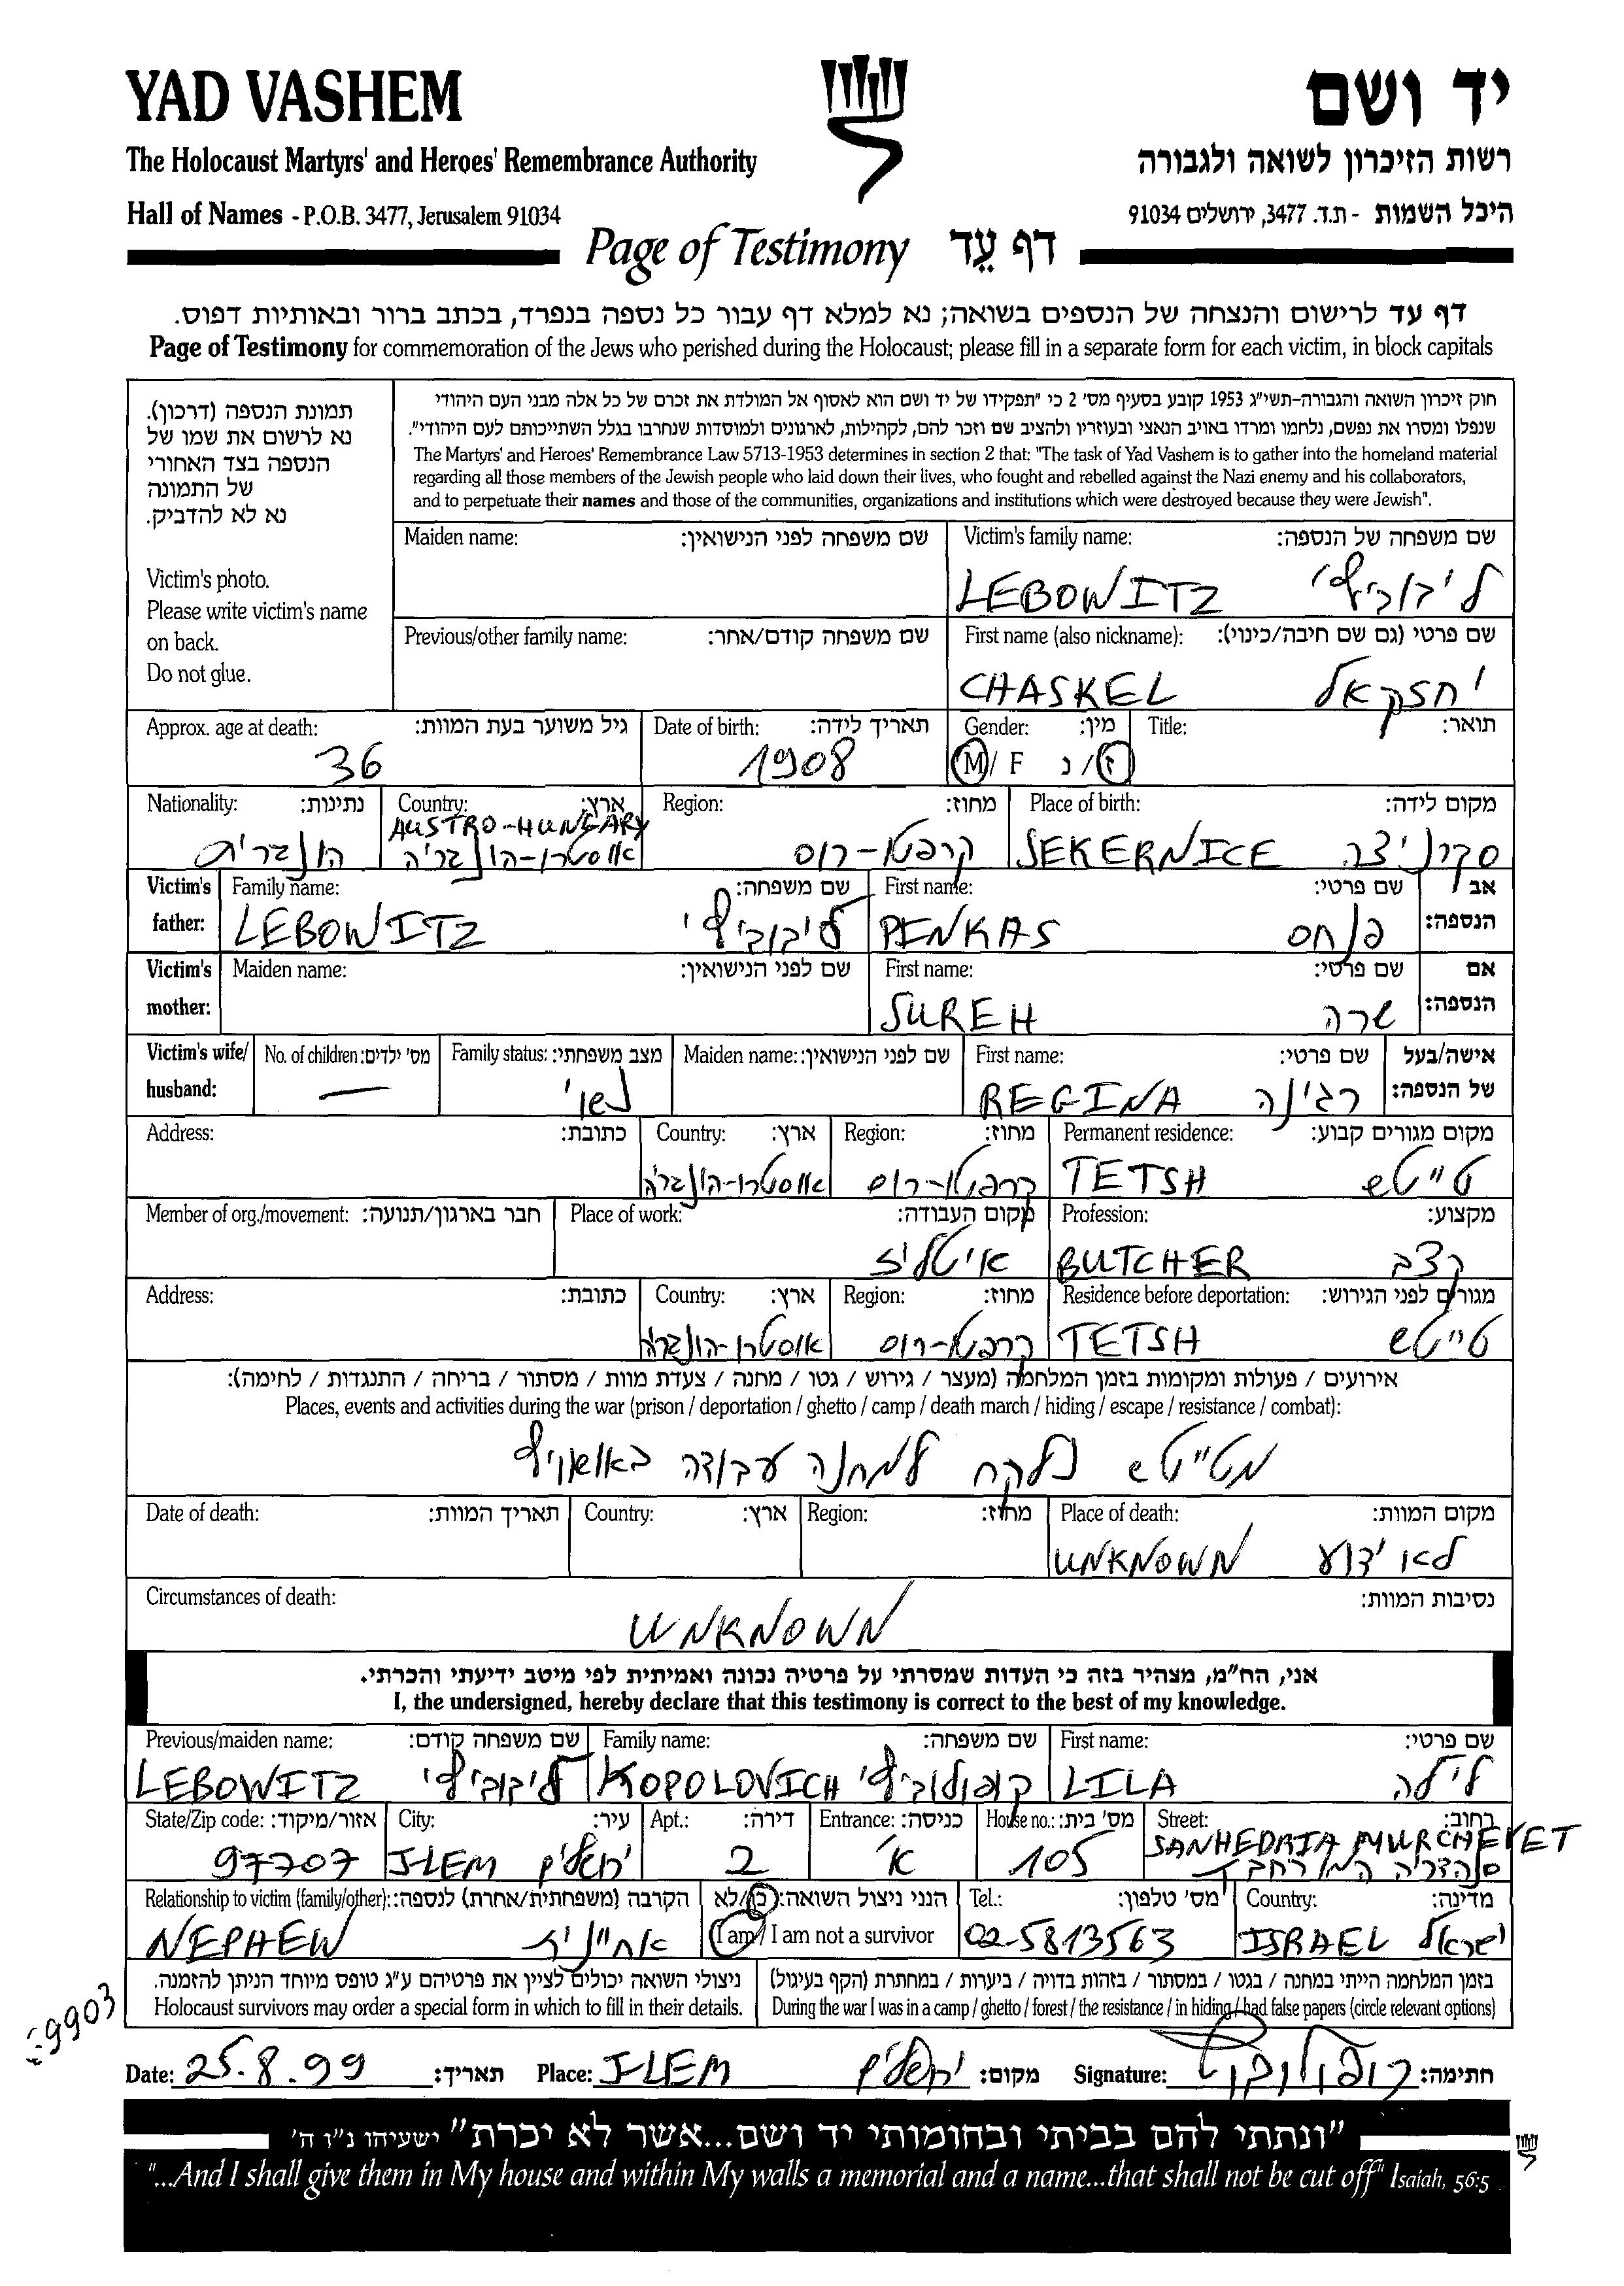 YAD VASHEM
יד ושם
The Holocaust Martyrs' and Heroes' Remembrance Authority
רשות הזיכרון לשואה ולגבורה
Hall of Names - P.O.B. 3477, Jerusalem 91034
היכל השמות - ת.ד. 3477, ירושלים 91034
Page of Testimony דף עֵד
דף עד לרישום והנצחה של הנספים בשואה; נא למלא דף עבור כל נספה בנפרד, בכתב ברור ובאותיות דפוס.
Page of Testimony for commemoration of the Jews who perished during the Holocaust; please fill in a separate form for each victim, in block capitals
תמונת הנספה (דרכון).
נא לרשום את שמו של
הנספה בצד האחורי
של התמונה
נא לא להדביק.
Victim's photo.
Please write victim's name
on back.
Do not glue.
חוק זיכרון השואה והגבורה-תשי"ג 1953 קובע בסעיף מס' 2 כי "תפקידו של יד ושם הוא לאסוף אל המולדת את זכרם של כל אלה מבני העם היהודי
שנפלו ומסרו את נפשם, נלחמו ומרדו באויב הנאצי ובעוזריו ולהציב שם וזכר להם, לקהילות, לארגונים ולמוסדות שנחרבו בגלל השתייכותם לעם היהודי".
The Martyrs' and Heroes' Remembrance Law 5713-1953 determines in section 2 that: "The task of Yad Vashem is to gather into the homeland material
regarding all those members of the Jewish people who laid down their lives, who fought and rebelled against the Nazi enemy and his collaborators,
and to perpetuate their names and those of the communities, organizations and institutions which were destroyed because they were Jewish".
Maiden name: שם משפחה לפני הנישואין:
Victim's family name: שם משפחה של הנספה:
LEBOWITZ ליבוביץ'
Previous/other family name: שם משפחה קודם/אחר:
First name (also nickname): שם פרטי (גם שם חיבה/כינוי):
CHASKEL יחזקאל
Approx. age at death: גיל משוער בעת המוות:
36
Date of birth: תאריך לידה:
1908
Gender: מין:
M/ F ז/ נ
Title: תואר:
Nationality: נתינות:
הונגרית
Country: ארץ:
AUSTRO-HUNGARY
אוסטרו-הונגריה
Region: מחוז:
קרפטו-רוס
Place of birth: מקום לידה:
SEKERNICE סקרניצה
Victim's father: אב הנספה:
Family name: שם משפחה:
LEBOWITZ ליבוביץ'
First name: שם פרטי:
PINKAS פנחס
Victim's mother: אם הנספה:
Maiden name: שם לפני הנישואין:
First name: שם פרטי:
SUREH שרה
Victim's wife/ husband: אישה/בעל של הנספה:
No. of children: מס' ילדים:
—
Family status: מצב משפחתי:
נשוי
Maiden name: שם לפני הנישואין:
First name: שם פרטי:
REGINA רגינה
Address: כתובת:
Country: ארץ:
אוסטרו-הונגריה
Region: מחוז:
קרפטו-רוס
Permanent residence: מקום מגורים קבוע:
TETSH טייטש
Member of org./movement: חבר בארגון/תנועה:
Place of work: מקום העבודה:
איטליז
Profession: מקצוע:
BUTCHER קצב
Address: כתובת:
Country: ארץ:
אוסטרו-הונגריה
Region: מחוז:
קרפטו-רוס
Residence before deportation: מגורים לפני הגירוש:
TETSH טייטש
אירועים / פעולות ומקומות בזמן המלחמה (מעצר / גירוש / גטו / מחנה / צעדת מוות / מסתור / בריחה / התנגדות / לחימה):
Places, events and activities during the war (prison / deportation / ghetto / camp / death march / hiding / escape / resistance / combat):
מטייטש נלקח למחנה עבודה באושויץ
Date of death: תאריך המוות:
Country: ארץ:
Region: מחוז:
Place of death: מקום המוות:
UNKNOWN לא ידוע
Circumstances of death: נסיבות המוות:
UNKNOWN
אני, הח"מ, מצהיר בזה כי העדות שמסרתי על פרטיה נכונה ואמיתית לפי מיטב ידיעתי והכרתי.
I, the undersigned, hereby declare that this testimony is correct to the best of my knowledge.
Previous/maiden name: שם משפחה קודם:
LEBOWITZ ליבוביץ'
Family name: שם משפחה:
KOPOLOVICH קופולוביץ'
First name: שם פרטי:
LILA לילה
State/Zip code: אזור/מיקוד:
97707
City: עיר:
J-LEM ירושלים
Apt.: דירה:
2
Entrance: כניסה:
א'
House no.: מס' בית:
105
Street: רחוב:
SANHEDRIA MURCHEVET
סנהדריה המורחבת
Relationship to victim (family/other): הקרבה (משפחתית/אחרת) לנספה:
NEPHEW אחיינית
הנני ניצול השואה: כן/לא
I am / I am not a survivor
Tel.: מס' טלפון:
02-5813563
Country: מדינה:
ISRAEL ישראל
ניצולי השואה יכולים לציין את פרטיהם ע"ג טופס מיוחד הניתן להזמנה.
Holocaust survivors may order a special form in which to fill in their details.
בזמן המלחמה הייתי במחנה / בגטו / במסתור / בזהות בדויה / ביערות / במחתרת (הקף בעיגול)
During the war I was in a camp / ghetto / forest / the resistance / in hiding / had false papers (circle relevant options)
Date: 25.8.99 תאריך:
Place: J-LEM ירושלים מקום:
Signature: חתימה:
"ונתתי להם בביתי ובחומותי יד ושם...אשר לא יכרת" ישעיהו נ"ו ה'
"...And I shall give them in My house and within My walls a memorial and a name...that shall not be cut off" Isaiah, 56:5